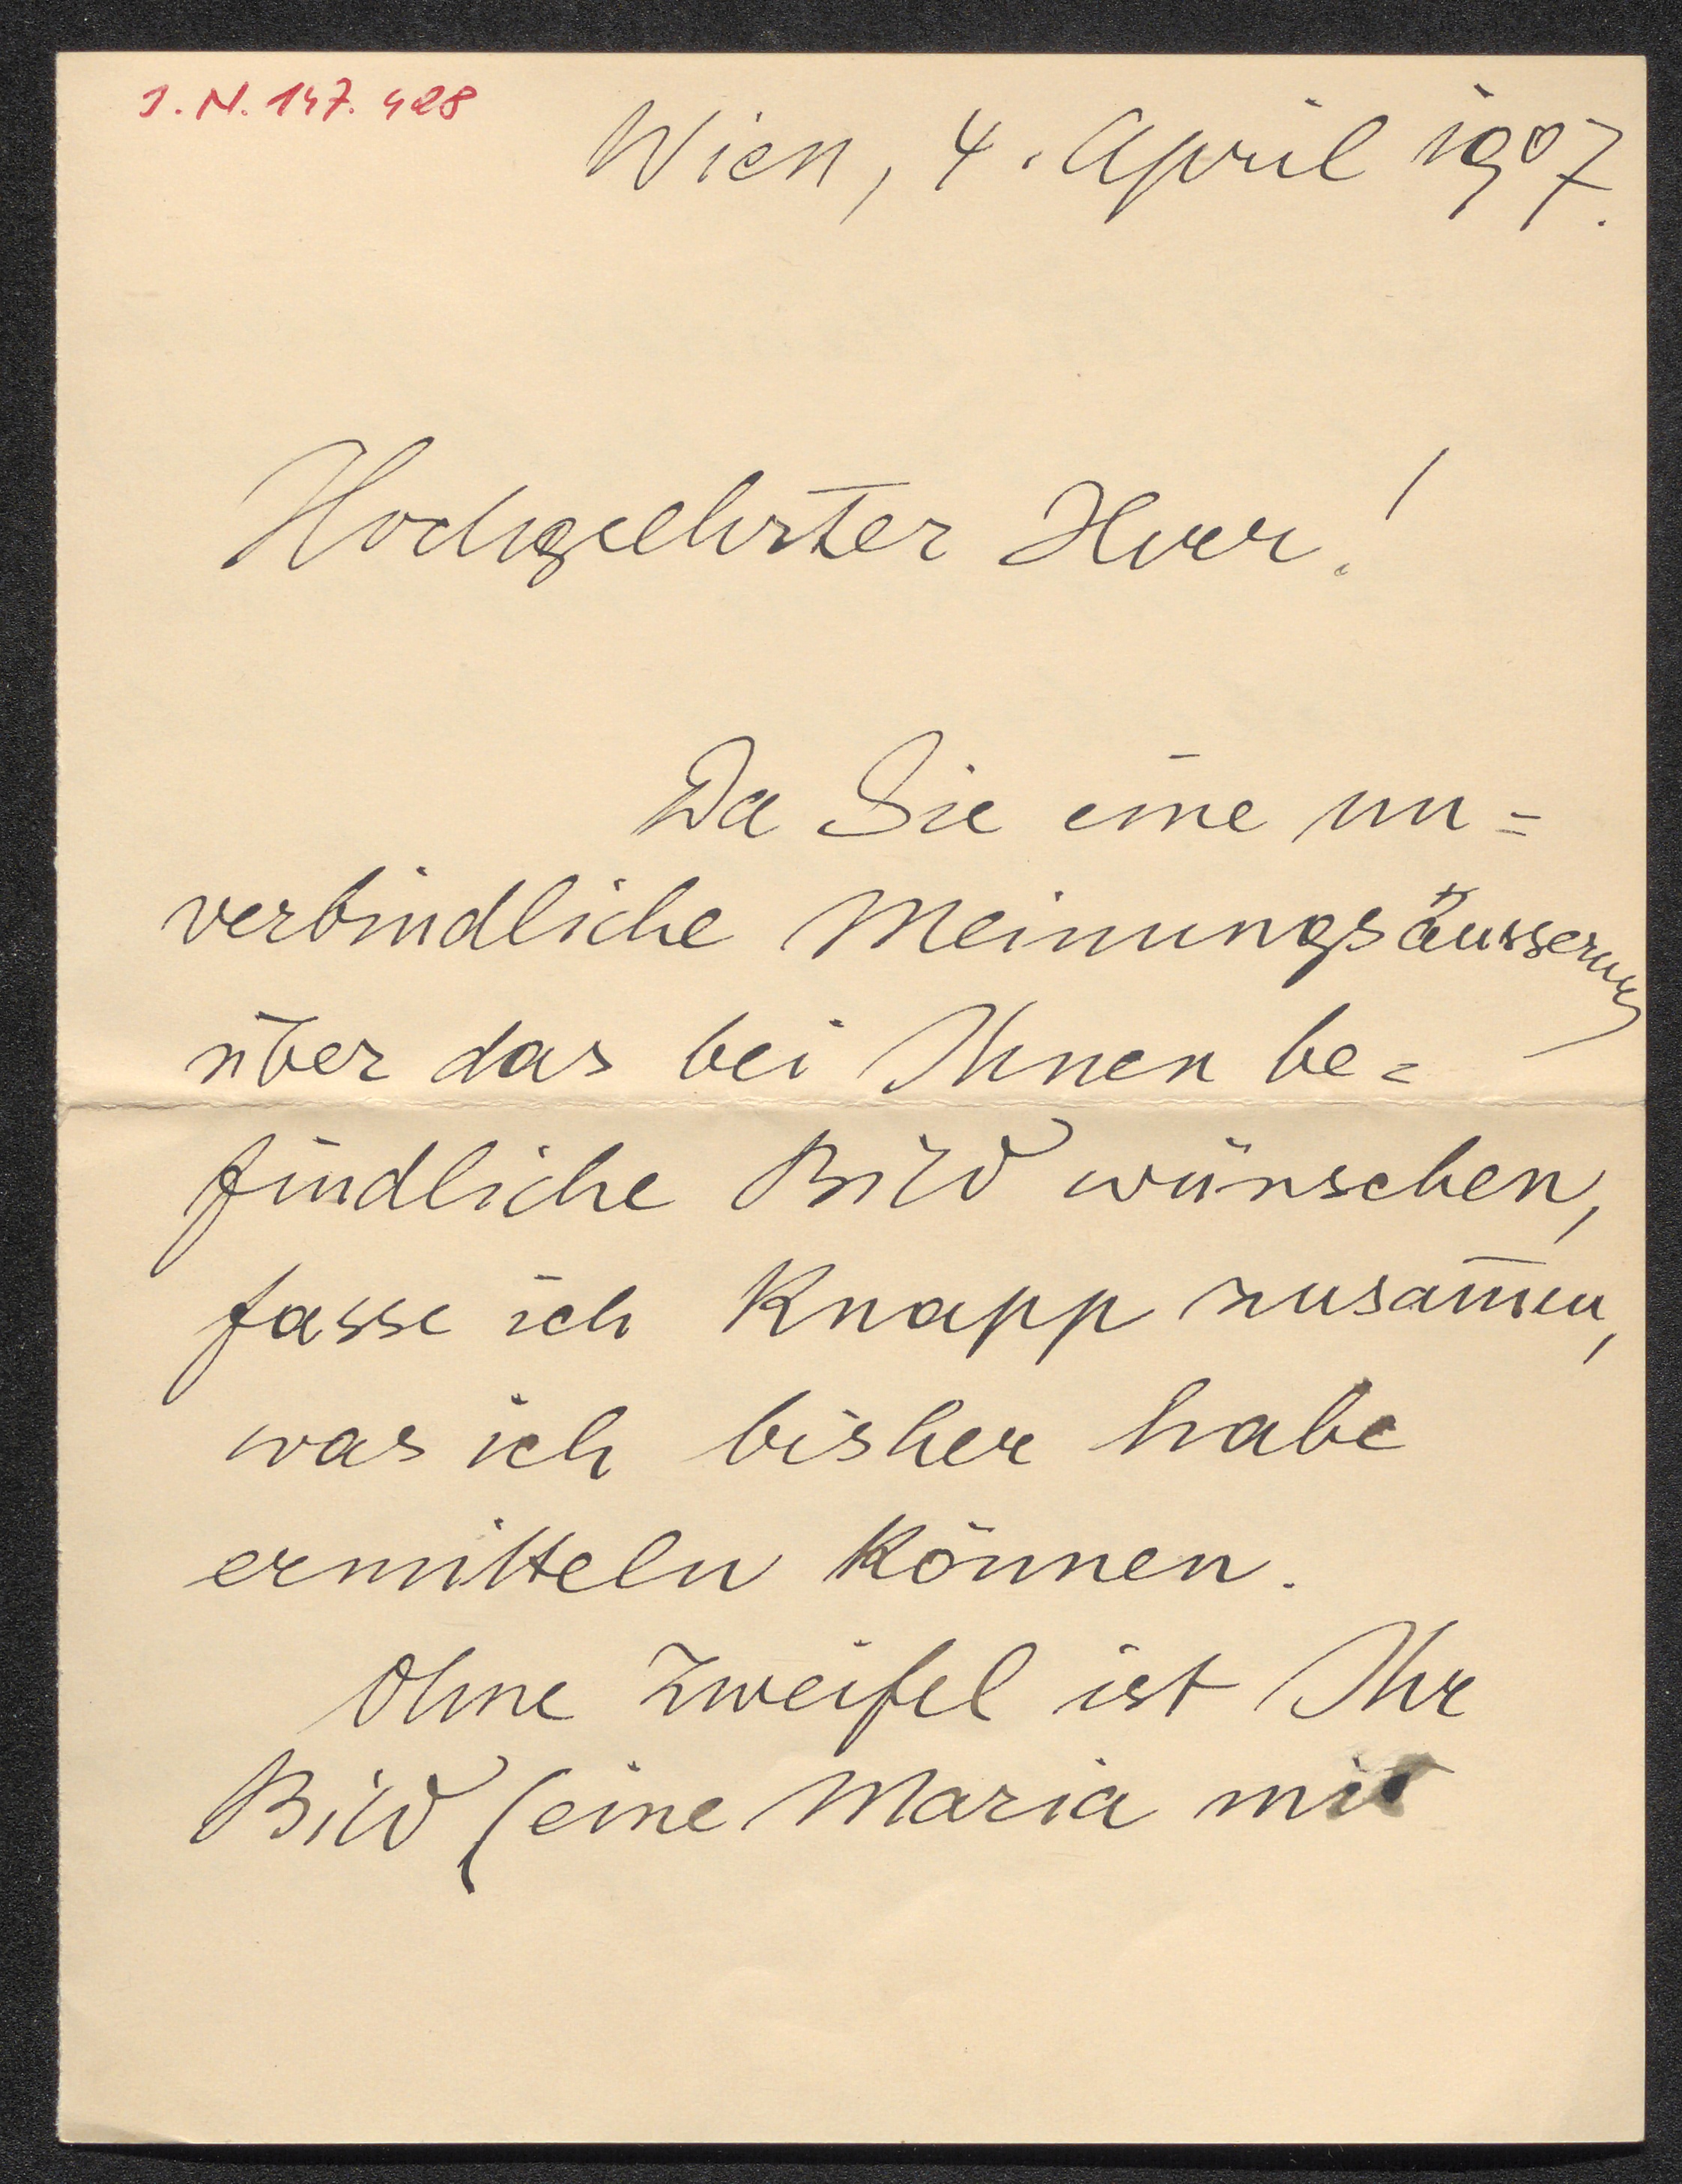 J. N. 147.428
Wien, 4. April 1907.
Hochgeehrter Herr!
Da Sie eine un=
verbindliche Meinungsäusserung
über das bei Ihnen be=
findliche Bild wünschen,
fasse ich knapp zusam̄en,
was ich bisher habe
ermitteln können.
Ohne Zweifel ist Ihr
Bild (eine Maria mit